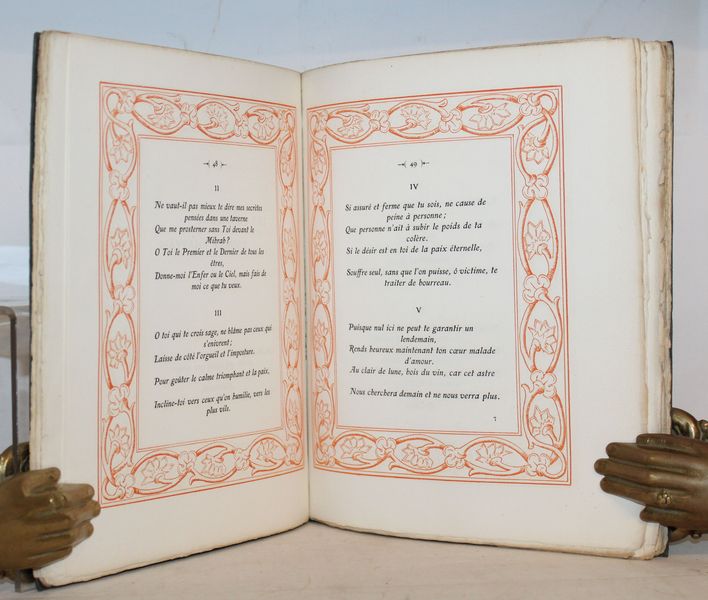 48
II
Ne vaut-il pas mieux te dire mes secrètes
pensées dans une taverne
Que me prosterner sans Toi devant le
Mihrab?
O Toi le Premier et le Dernier de tous les
êtres,
Donne-moi l'Enfer ou le Ciel, mais fais de
moi ce que tu veux.
III
O toi qui te crois sage, ne blâme pas ceux qui
s'enivrent;
Laisse de côté l'orgueil et l'imposture.
Pour goûter le calme triomphant et la paix,
Incline-toi vers ceux qu'on humilie, vers les
plus vils.
49
IV
Si assuré et ferme que tu sois, ne cause de
peine à personne;
Que personne n'ait à subir le poids de ta
colère.
Si le désir est en toi de la paix éternelle,
Souffre seul, sans que l'on puisse, ô victime, te
traiter de bourreau.
V
Puisque nul ici ne peut te garantir un
lendemain,
Rends heureux maintenant ton cœur malade
d'amour.
Au clair de lune, bois du vin, car cet astre
Nous cherchera demain et ne nous verra plus.
7